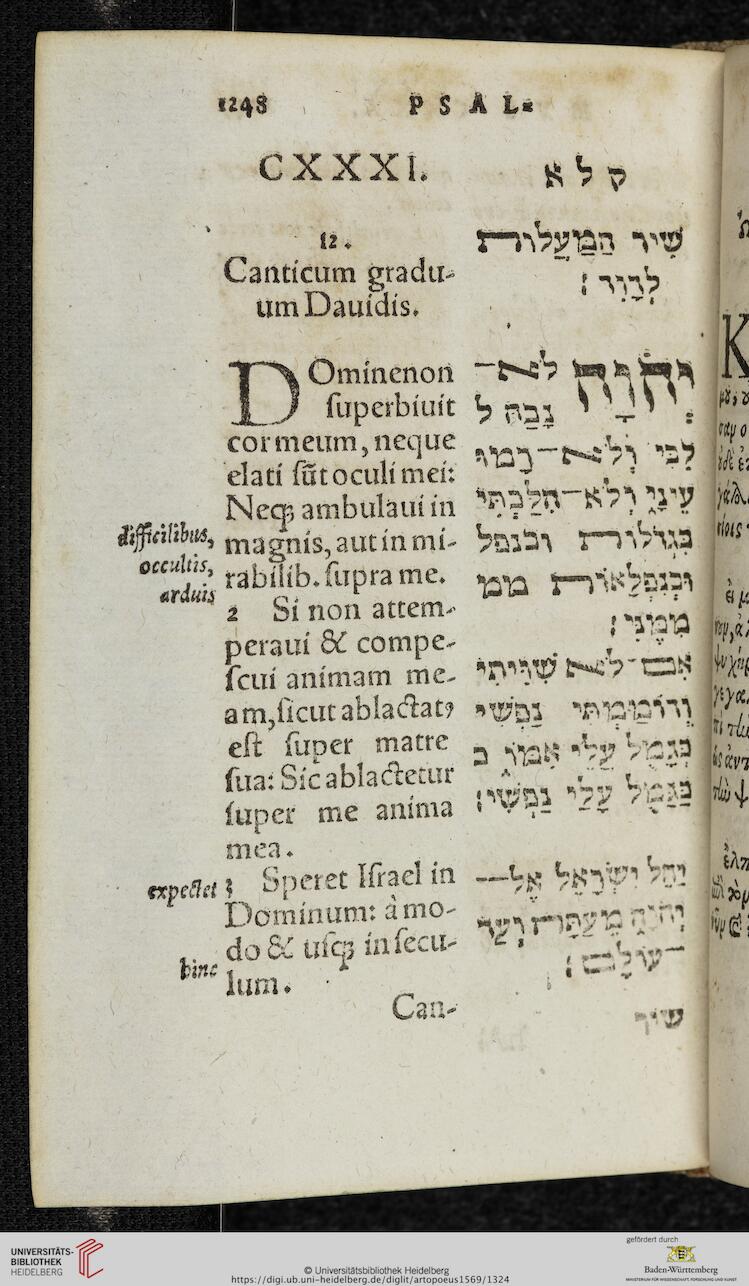 1248 PSAL-
CXXXI.
12.
Canticum gradu-
um Dauidis.
DOminenon
superbiuit
cor meum, neque
elati sũt oculi mei:
Neqꝫ ambulaui in
magnis, aut in mi-
rabilib. supra me.
2 Si non attem-
peraui & compe-
scui animam me-
am, sicut ablactatꝰ
est super matre
sua: Sic ablactetur
super me anima
mea.
3 Speret Israel in
Dominum: à mo-
do & usqꝫ in secu-
lum.
Can-
difficilibus,
occultis,
arduis
expectet
hinc
קלא
שִׁיר הַמַּעֲלוֹת
לְדָוִד׃
יְהֹוָה לֹא־
גָבַהּ ל
לִבִּי וְלֹא־רָמוּ
עֵינַי וְלֹא־הִלַּכְתִּי
בִּגְדֹלוֹת ובנפל
וּבְנִפְלָאוֹת ממ
מִמֶּנִּי׃
אִם־לֹא שִׁוִּיתִי
וְדוֹמַמְתִּי נַפְשִׁי
כְּגָמֻל עֲלֵי אִמּוֹ כ
כַּגָּמֻל עָלַי נַפְשִׁי׃
יַחֵל יִשְׂרָאֵל אֶל־
יְהֹוָה מֵעַתָּה וְעַד
־עוֹלָם׃
שיר
UNIVERSITÄTS-
BIBLIOTHEK
HEIDELBERG
© Universitätsbibliothek Heidelberg
https://digi.ub.uni-heidelberg.de/diglit/artopoeus1569/1324
gefördert durch
Baden-Württemberg
MINISTERIUM FÜR WISSENSCHAFT, FORSCHUNG UND KUNST